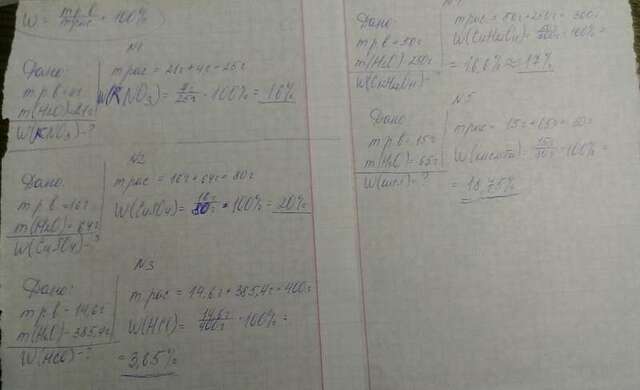 W = m р.в / m рас · 100%
N1
Дано:
m р.в = 4г
m(H2O) = 21г
W(KNO3) - ?
m рас = 21г + 4г = 25г
W(KNO3) = 4г/25г · 100% = 16%
N2
Дано:
m р.в = 16г
m(H2O) = 64г
W(CuSO4) - ?
m рас = 16г + 64г = 80г
W(CuSO4) = 16г/80г · 100% = 20%
N3
Дано:
m р.в - 14,6г
m(H2O) - 385,4г
W(HCl) - ?
m рас = 14,6г + 385,4г = 400г
W(HCl) = 14,6г/400г · 100% =
= 3,65%
Дано:
m р.в = 50г
m(H2O) - 250г
m рас = 50г + 250г = 300г
· 100% =
= 16,6% ≈ 17%
N5
Дано
m р.в = 15г
m(H2O) = 65г
- ?
m рас = 15г + 65г = 80г
15г/80г · 100% =
= 18,75%